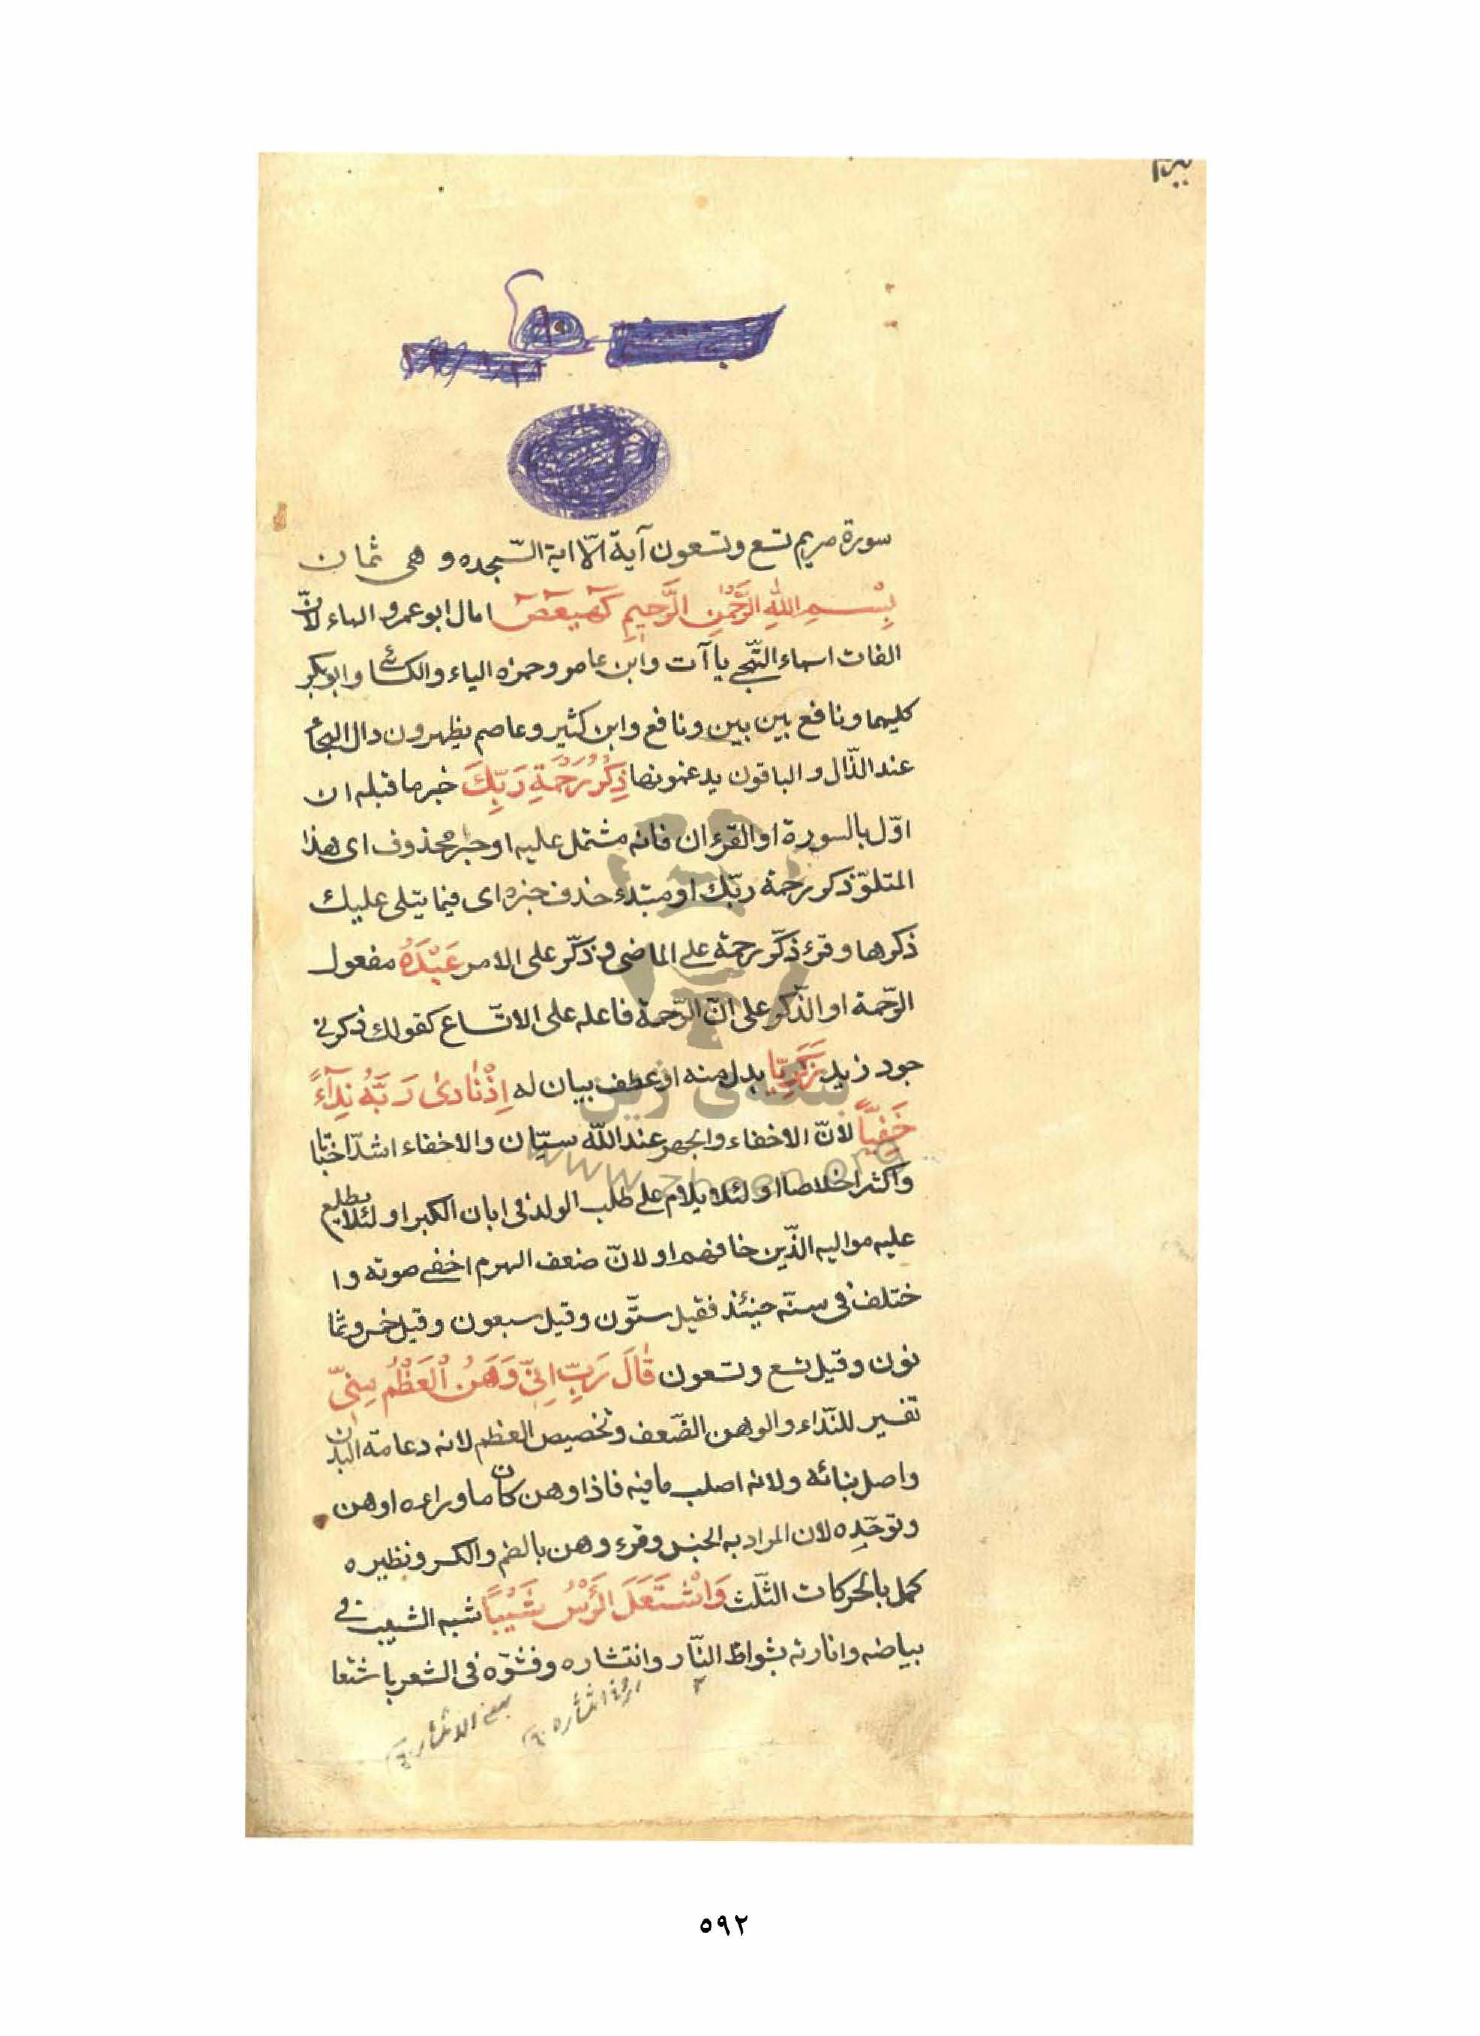 سورة مريم تسع وتسعون آية الّا اية السّجده وهى ثمان
بِسْمِ اللهِ الرَّحْمٰنِ الرَّحِيمِ كٓهٰيٰعٓصٓ امال ابو عمرو الهاء لانّ
الفات اسماء التّهجى ياآت وابن عامر وحمزه الياء والكسائى وابوبكر
كليهما ونافع بين بين ونافع وابن كثير وعاصم يظهرون دال الهجاء
عند الذّال والباقون يدغمونها ذِكْرُ رَحْمَةِ رَبِّكَ خبر ما قبله ان
اوّل بالسورة او القرءان فانه مشتمل عليه او خبر محذوف اى هذا
المتلوّ ذكر رحمة ربّك او مبتدء حذف خبره اى فيما يتلى عليك
ذكرها وقرء ذكّر رحمة على الماضى وذكّر على الامر عَبْدَهُ مفعول
الرّحمة او الذّكر على انّ الرّحمة فاعله على الاتّساع كقولك ذكرنى
جود زيد زَكَرِيّا بدل منه او عطف بيان له اِذْ نٰادىٰ رَبَّهُ نِدٰآءً
خَفِيّاً لانّ الاخفاء والجهر عند اللّٰه سيّان والاخفاء اشدّ اخباتا
واكثر اخلاصا او لئلا يلام على طلب الولد فى ابان الكبر او لئلا يطلع
عليه مواليه الذّين خافهم او لانّ ضعف الهرم اخفى صوته وا
ختلف فى سنّه حينئذ فقيل ستّون وقيل سبعون وقيل خمس وثما
نون وقيل تسع وتسعون قٰالَ رَبِّ اِنّى وَهَنَ الْعَظْمُ مِنّى
تفسير للنّداء والوهن الضّعف وتخصيص العظم لانه دعامة البدن
واصل بنائه ولانه اصلب ما فيه فاذا وهن كان ما وراءه اوهن
وتوحّده لان المراد به الجنس وقرء وهن بالضم والكسر ونظيره
كمل بالحركات الثّلث وَاشْتَعَلَ الرَّأْسُ شَيْباً شبه الشيب فى
بياضه وانارته بشواظ النّار وانتشاره وفشوّه فى الشعر باشتعا
بنكەى ژين
www.zheen.org
٥٩٢